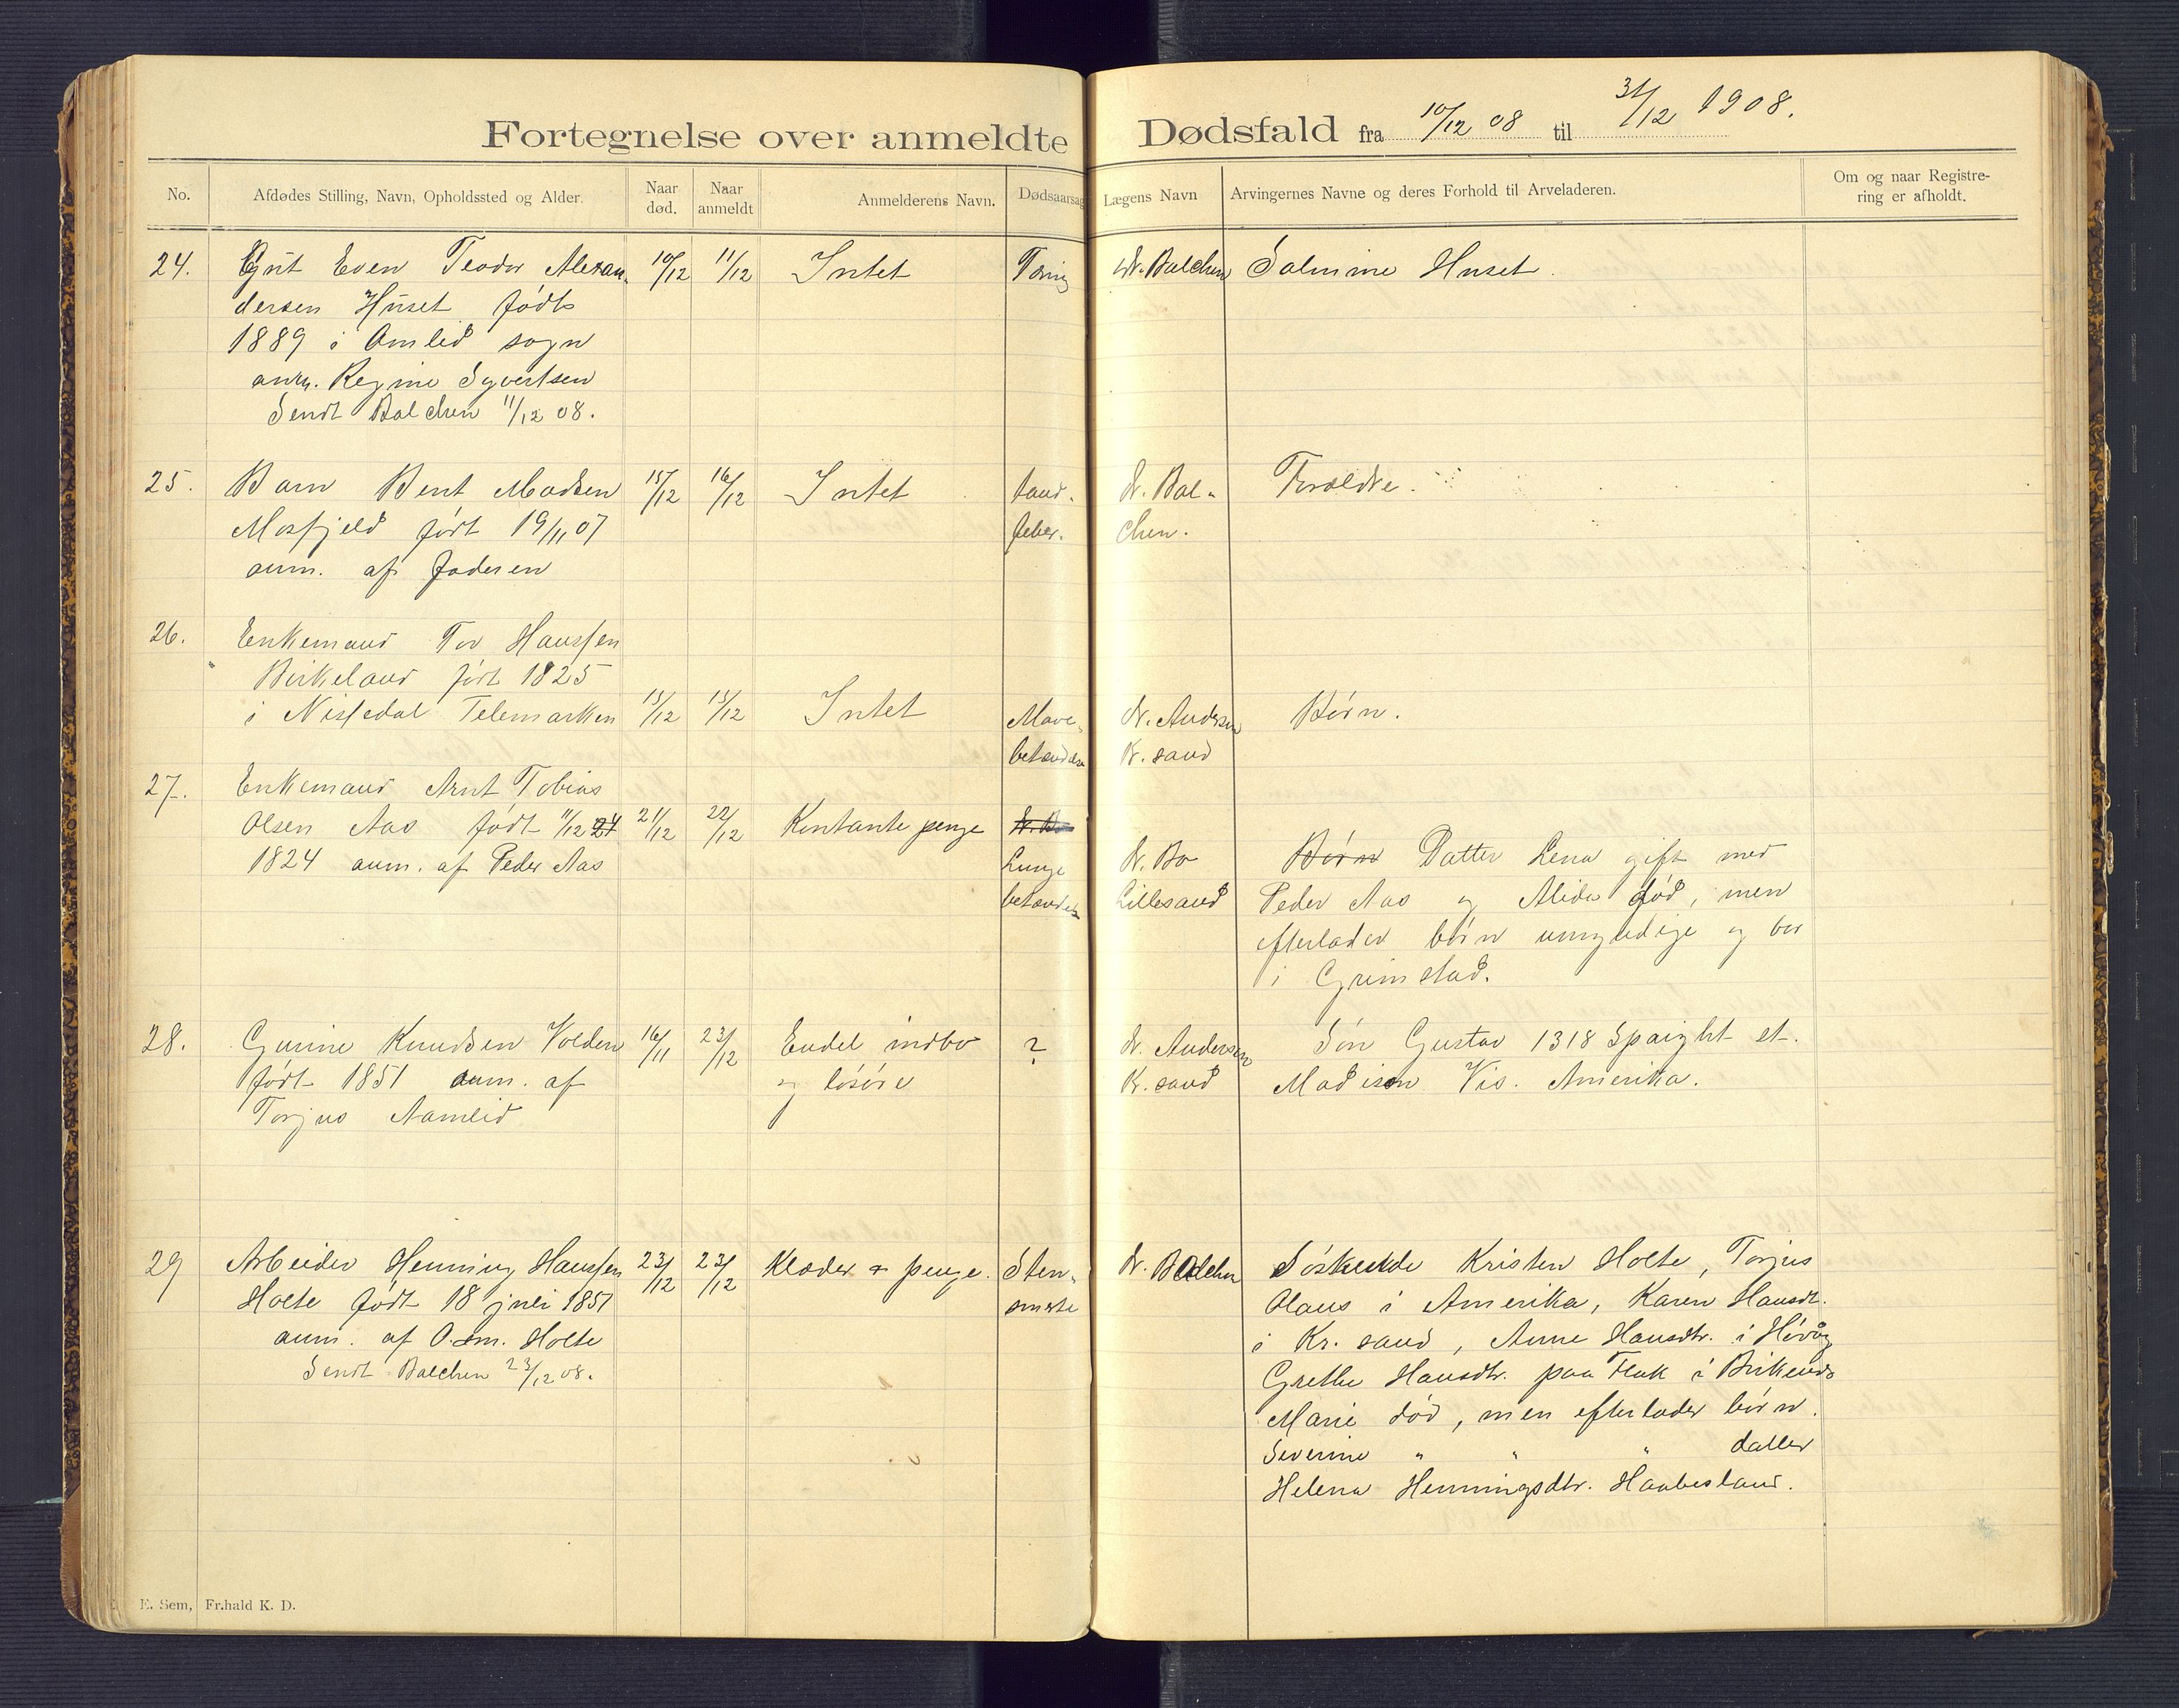 Fortegnelse over anmeldte Dødsfald fra 10/12 08 til 31/12 1908.
No. Afdødes Stilling, Navn, Opholdssted og Alder. Naar død. Naar anmeldt Anmelderens Navn. Dødsaarsag Lægens Navn Arvingernes Navne og deres Forhold til Arveladeren. Om og naar Registrering er afholdt.
24. Gut Even Teodor Alexan- 10/12 11/12 Intet Tæring Dr. Balchen Salmine Huset.
dersen Huset født
1889 i Omlid sogn
anm. Regine Syvertsen
Sendt Balchen 11/12 08.
25. Barn Bent Madsen 15/12 16/12 Intet tand- Dr. Bal- Forældre.
Mosfjeld født 19/11 07 feber. chen.
anm. af faderen
26. Enkemand Tov Hanssen
Birkeland født 1825
i Nissedal Telemarken 15/12 15/12 Intet Mave- Dr. Andersen Børn.
betændelse Kr. sand
27. Enkemand Arnt Tobias
Olsen Aas født 11/12 24 21/12 22/12 Kontante penge Dr. Bo
1824 anm. af Peder Aas Lunge Dr. Bo Børn Datter Lena gift med
betændelse Lillesand Peder Aas og Alida død, men
efterlader børn umyndige og bor
i Grimstad.
28. Gurine Knudsen Volden 16/11 23/12 Endel indbo ? Dr. Andersen Søn Gustav 1318 Spaight st.
født 1851 anm. af og løsøre Kr. sand Madison Vis. Amerika.
Torjus Aamlid
29 Arbeider Henning Hanssen 23/12 23/12 Klæder & penge. Sten- Dr. Balchen Søskende Kristen Holte, Torjus
Holte født 18 juli 1851 smerte Olaus i Amerika, Karen Hansdt.
anm. af O. sm. Holte i Kr. sand, Anne Hansdtr. i Høvåg
Sendt Balchen 23/12 08. Grethe Hansdtr. paa Flak i Birkenæs
Marie død, men efterlader børn.
Severine " " " datter
Helena Henningsdtr. Haabesland.
E. Sem, Fr.hald K. D.